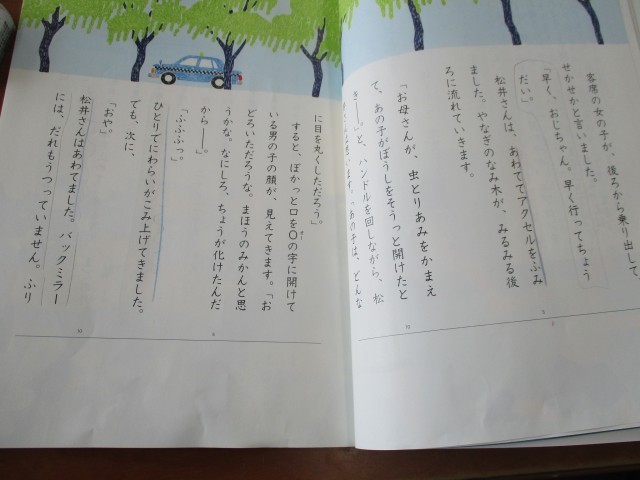 客席の女の子が、後ろから乗り出して、
せかせかと言いました。
「早く、おじちゃん。早く行ってちょう
だい。」
松井さんは、あわててアクセルをふみ
ました。やなぎのなみ木が、みるみる後
ろに流れていきます。
「お母さんが、虫とりあみをかまえ
て、あの子がぼうしをそうっと開けたと
き――。」と、ハンドルを回しながら、松
います。「あの子は、どんな
に目を丸くしただろう。」
すると、ぽかっと口をOの字に開けて
いる男の子の顔が、見えてきます。「お
どろいただろうな。まほうのみかんと思
うかな。なにしろ、ちょうが化けたんだ
から――。」
「ふふふっ。」
ひとりでにわらいがこみ上げてきました。
でも、次に、
「おや。」
松井さんはあわてました。バックミラー
には、だれもうつっていません。ふり
5
10
5
10